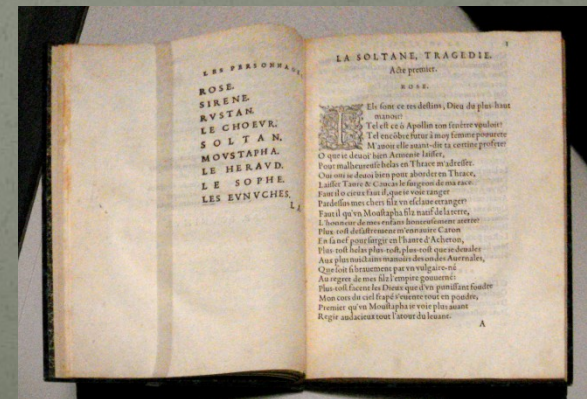 LES PERSONNAGES
ROSE.
SIRENE.
RVSTAN.
LE CHOEVR.
SOLTAN.
MOVSTAPHA.
LE HERAVD.
LE SOPHE.
LES EVNVCHES.
LA
LA SOLTANE, TRAGEDIE.
Acte premier.
ROSE.
Els sont ce tes destins, Dieu du plus haut
manoir?
Tel est ce ô Apollin ton
Tel encôbre futur à moy femme
M'auoit elle auant-dit ta certine
O que ie deuoi bien Armenie laisser,
Pour malheureuse helas en Thrace m'adresser.
Oui oui ie deuoi bien pour aborder en Thrace,
Laisser Taure & Caucas le surgeon de ma race.
Faut il o cieux faut il, que ie voie ranger
Pardessus mes chers filz vn esclaue etranger?
Faut il qu'vn Moustapha filz natif de la terre,
L'honneur de mes enfans iniurieusement aterre?
Plus-tost desastreusement m'ennauire Caron
En sa nef pour surgir en l'hante d'Acheron,
Plus-tost helas plus-tost, plus-tost que ie deuales
Aux plus nuictains manoirs des ondes Auernales,
Que soit si brauement par vn vulgaire-né
Au regrets de mes filz l'empire gouuerné:
Plus-tost facent les Dieux que d'vn punissant foudre
Mon cors du ciel frapé s'euente tout en poudre,
Premier qu'vn Moustapha ie voie plus auant
Regir audacieux tout l'atour du leuant.
A